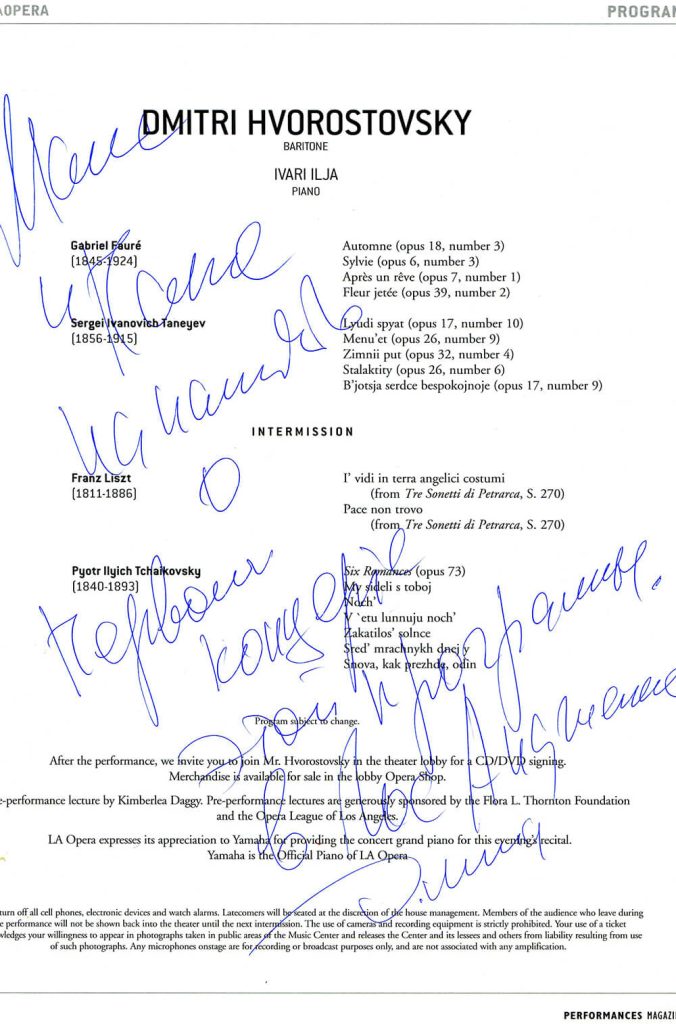 OPERA
PROGRAM
DMITRI HVOROSTOVSKY
BARITONE
IVARI ILJA
PIANO
Gabriel Fauré
(1845-1924)
Automne (opus 18, number 3)
Sylvie (opus 6, number 3)
Après un rêve (opus 7, number 1)
Fleur jetée (opus 39, number 2)
Sergei Ivanovich Taneyev
(1856-1915)
Lyudi spyat (opus 17, number 10)
Menu'et (opus 26, number 9)
Zimnii put (opus 32, number 4)
Stalaktity (opus 26, number 6)
B'jotsja serdce bespokojnoje (opus 17, number 9)
INTERMISSION
Franz Liszt
(1811-1886)
I' vidi in terra angelici costumi
(from Tre Sonetti di Petrarca, S. 270)
Pace non trovo
(from Tre Sonetti di Petrarca, S. 270)
Pyotr Ilyich Tchaikovsky
(1840-1893)
Six Romances (opus 73)
My sideli s toboj
Noch'
V `etu lunnuju noch'
Zakatilos' solnce
Sred' mrachnykh dnej y
Snova, kak prezhde, odin
Program subject to change.
After the performance, we invite you to join Mr. Hvorostovsky in the theater lobby for a CD/DVD signing.
Merchandise is available for sale in the lobby Opera Shop.
e-performance lecture by Kimberlea Daggy. Pre-performance lectures are generously sponsored by the Flora L. Thornton Foundation
and the Opera League of Los Angeles.
LA Opera expresses its appreciation to Yamaha for providing the concert grand piano for this evening's recital.
Yamaha is the Official Piano of LA Opera
turn off all cell phones, electronic devices and watch alarms. Latecomers will be seated at the discretion of the house management. Members of the audience who leave during
e performance will not be shown back into the theater until the next intermission. The use of cameras and recording equipment is strictly prohibited. Your use of a ticket
wledges your willingness to appear in photographs taken in public areas of the Music Center and releases the Center and its lessees and others from liability resulting from use
of such photographs. Any microphones onstage are for recording or broadcast purposes only, and are not associated with any amplification.
PERFORMANCES MAGAZI
на память
о
первом концерте
в Лос Анджелесе